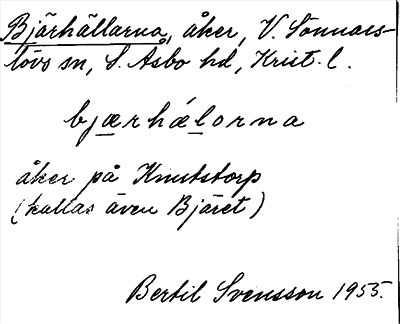 Bjärhällarna, åker, V. Sönnars-
lövs sn, S. Åsbo hd, Krist. l.
bjærhælorna
åker på Knutstorp
(kallas även Bjäret)
Bertil Svensson 1955.